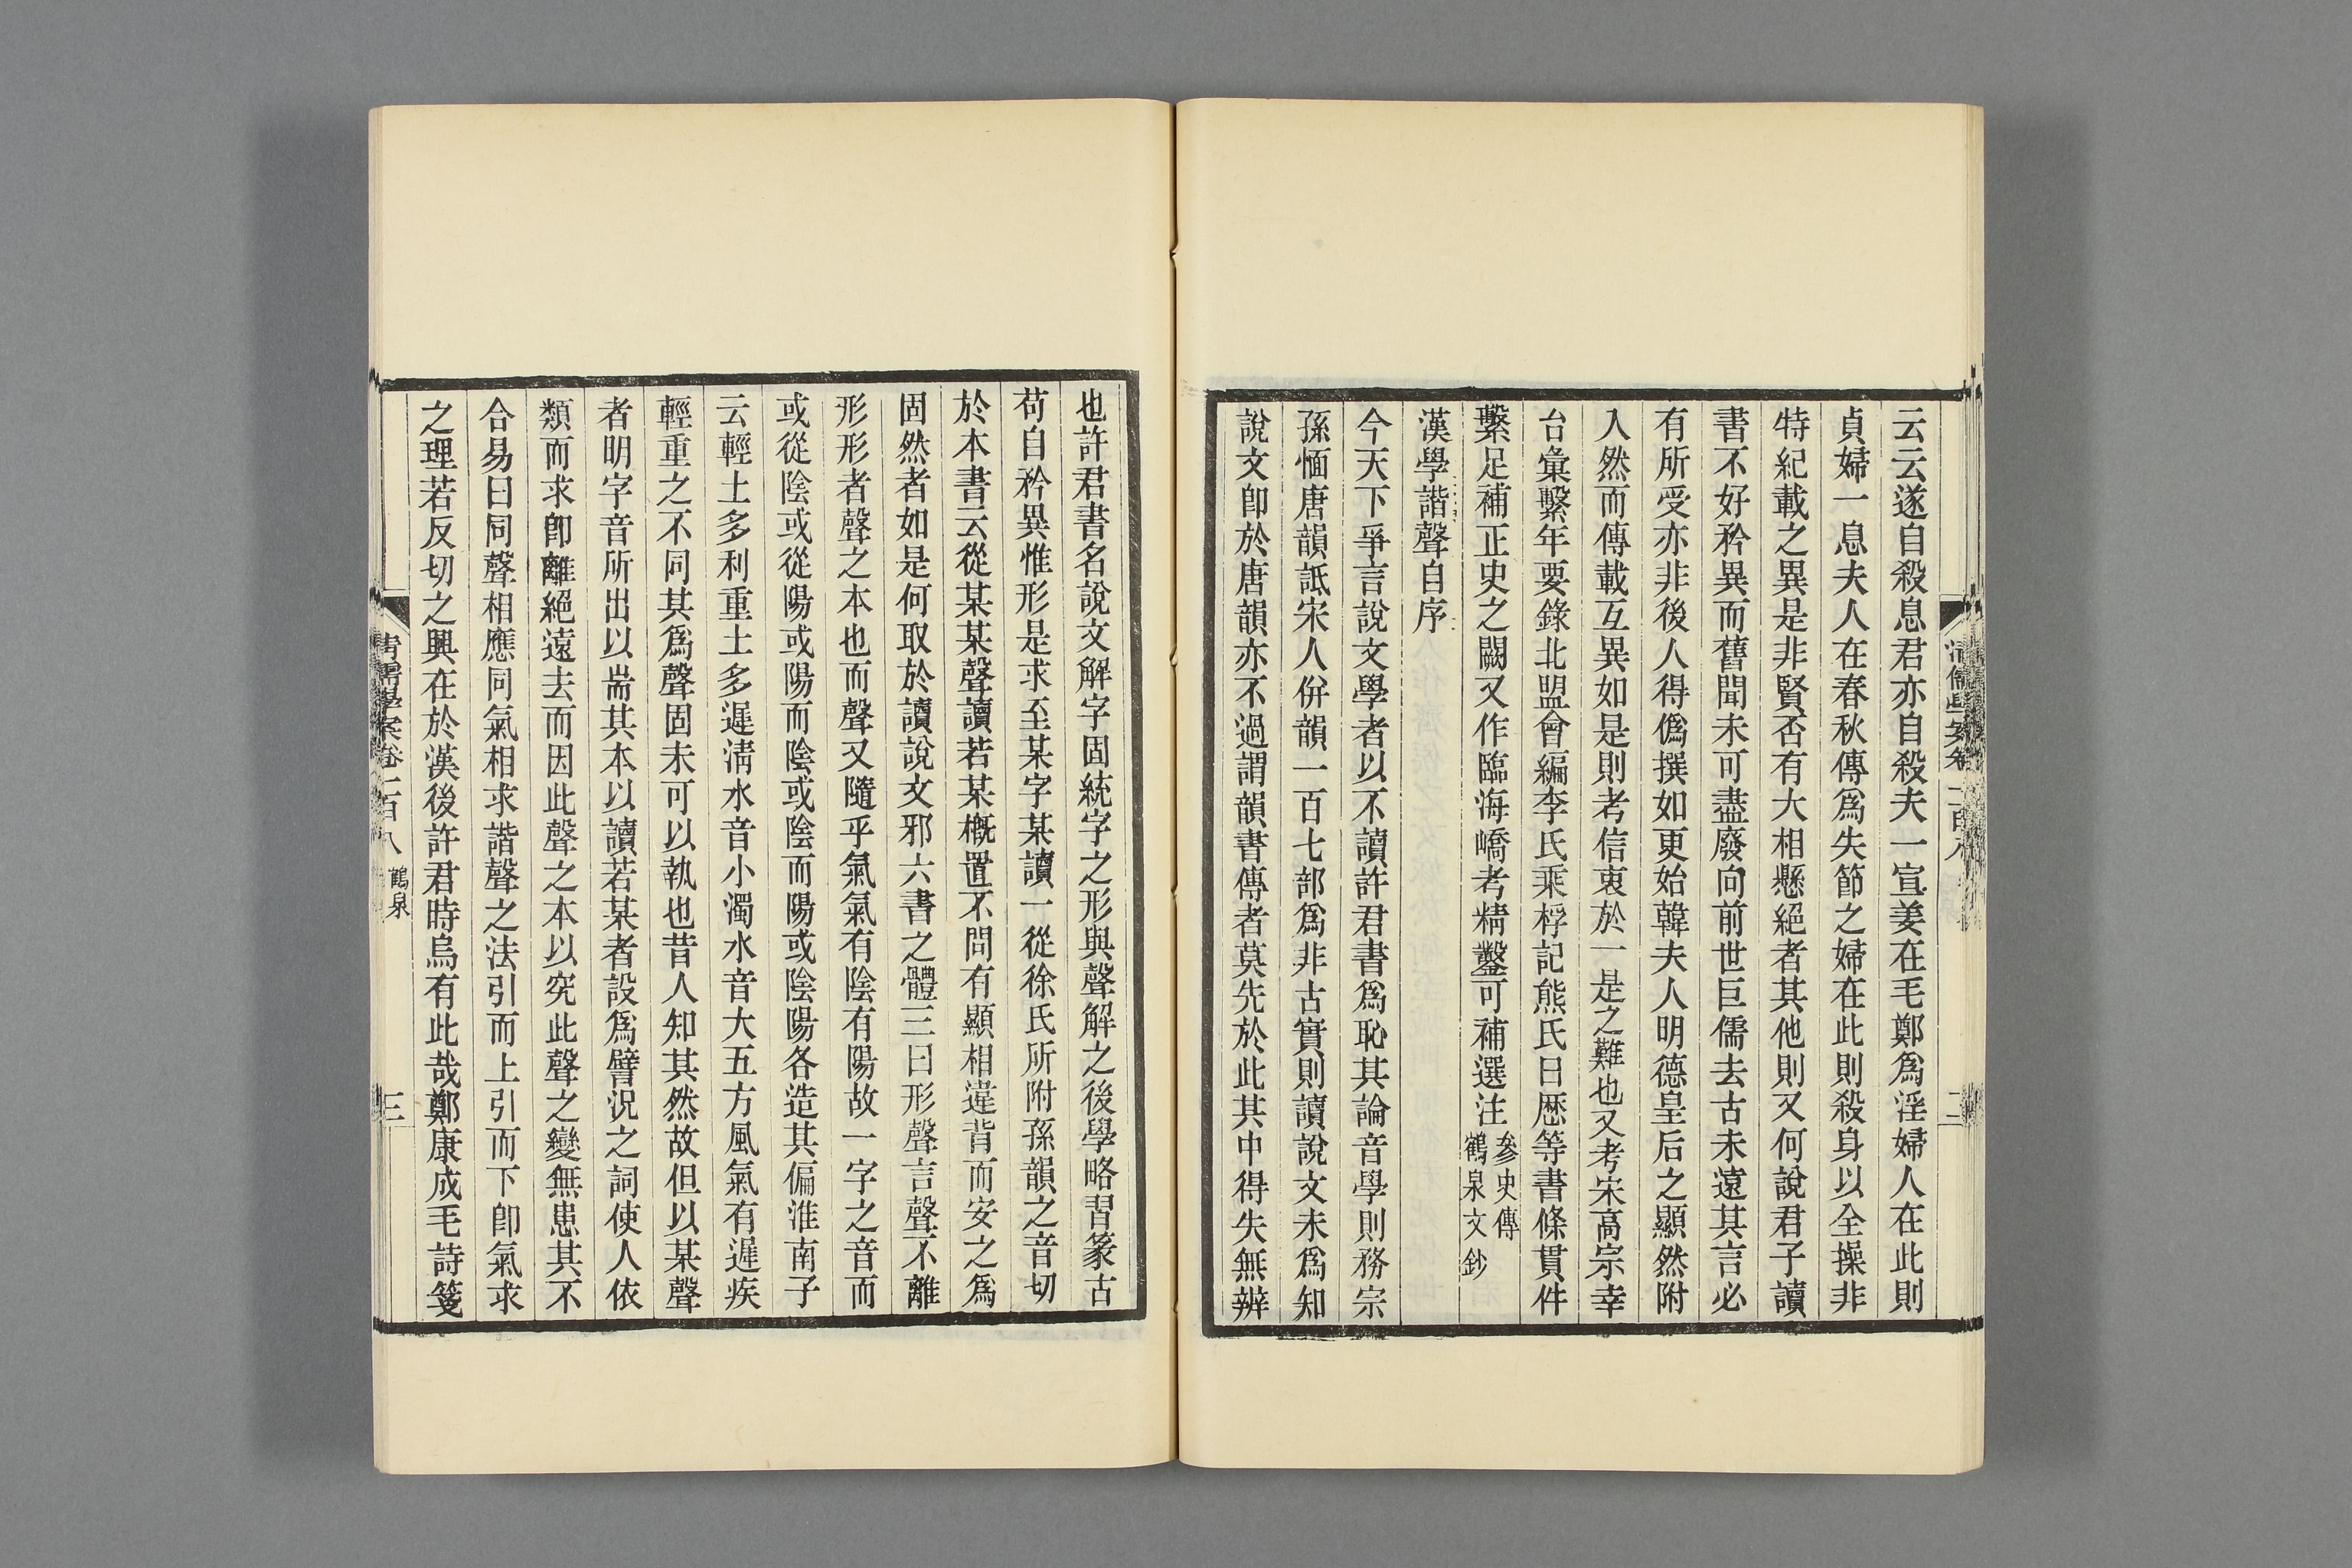 云云遂自殺息君亦自殺夫一宣姜在毛鄭爲淫婦人在此則
貞婦一息夫人在春秋傳爲失節之婦在此則殺身以全操非
特紀載之異是非賢否有大相懸絕者其他則又何說君子讀
書不好矜異而舊聞未可盡廢向前世巨儒去古未遠其言必
有所受亦非後人得僞撰如更始韓夫人明德皇后之顯然附
入然而傳載互異如是則考信衷於一是之難也又考宋高宗幸
台彙繫年要錄北盟會編李氏乘桴記熊氏日歷等書條貫件
繫足補正史之闕又作臨海嶠考精鑿可補選注
參史傳
鶴泉文鈔
漢學諧聲自序
今天下爭言說文學者以不讀許君書爲恥其論音學則務宗
孫愐唐韻詆宋人倂韻一百七部爲非古實則讀說文未爲知
說文卽於唐韻亦不過謂韻書傳者莫先於此其中得失無辨
也許君書名說文解字固統字之形與聲解之後學略習篆古
苟自矜異惟形是求至某字某讀一從徐氏所附孫韻之音切
於本書云從某某聲讀若某槪置不問有顯相違背而安之爲
固然者如是何取於讀說文邪六書之體三曰形聲言聲不離
形形者聲之本也而聲又隨乎氣氣有陰有陽故一字之音而
或從陰或從陽或陽而陰或陰而陽或陰陽各造其偏淮南子
云輕土多利重土多遲淸水音小濁水音大五方風氣有遲疾
輕重之不同其爲聲固未可以執也昔人知其然故但以某聲
者明字音所出以耑其本以讀若某者設爲譬況之詞使人依
類而求卽離絕遠去而因此聲之本以究此聲之變無患其不
合易曰同聲相應同氣相求諧聲之法引而上引而下卽氣求
之理若反切之興在於漢後許君時烏有此哉鄭康成毛詩箋
清儒學案卷二百八 鶴泉
三